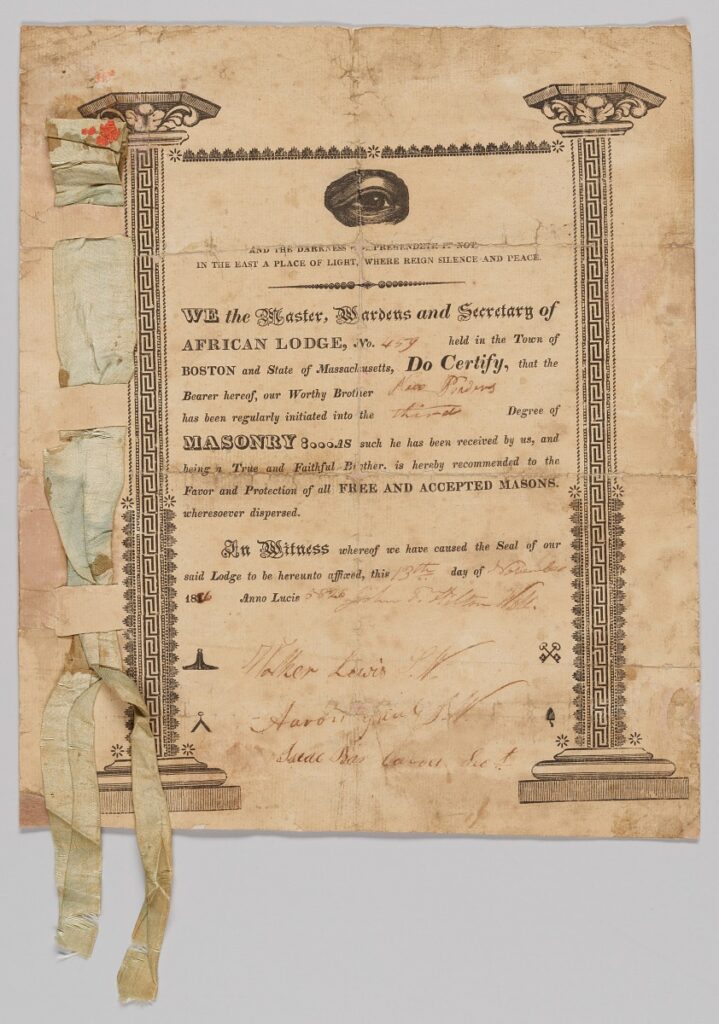 AND THE DARKNESS COMPREHENDETH IT NOT.
IN THE EAST A PLACE OF LIGHT, WHERE REIGN SILENCE AND PEACE.
WE the Master, Wardens and Secretary of
AFRICAN LODGE, No. 459 held in the Town of
BOSTON and State of Massachusetts, Do Certify, that the
Bearer hereof, our Worthy Brother
has been regularly initiated into the third Degree of
MASONRY:....AS such he has been received by us, and
being a True and Faithful Brother, is hereby recommended to the
Favor and Protection of all FREE AND ACCEPTED MASONS.
wheresoever dispersed.
In Witness whereof we have caused the Seal of our
said Lodge to be hereunto affixed, this 13th day of November
1826 Anno Lucis 5826 John T. Hilton
Walker Lewis S.W
Aaron Gaul J.W
Sec't